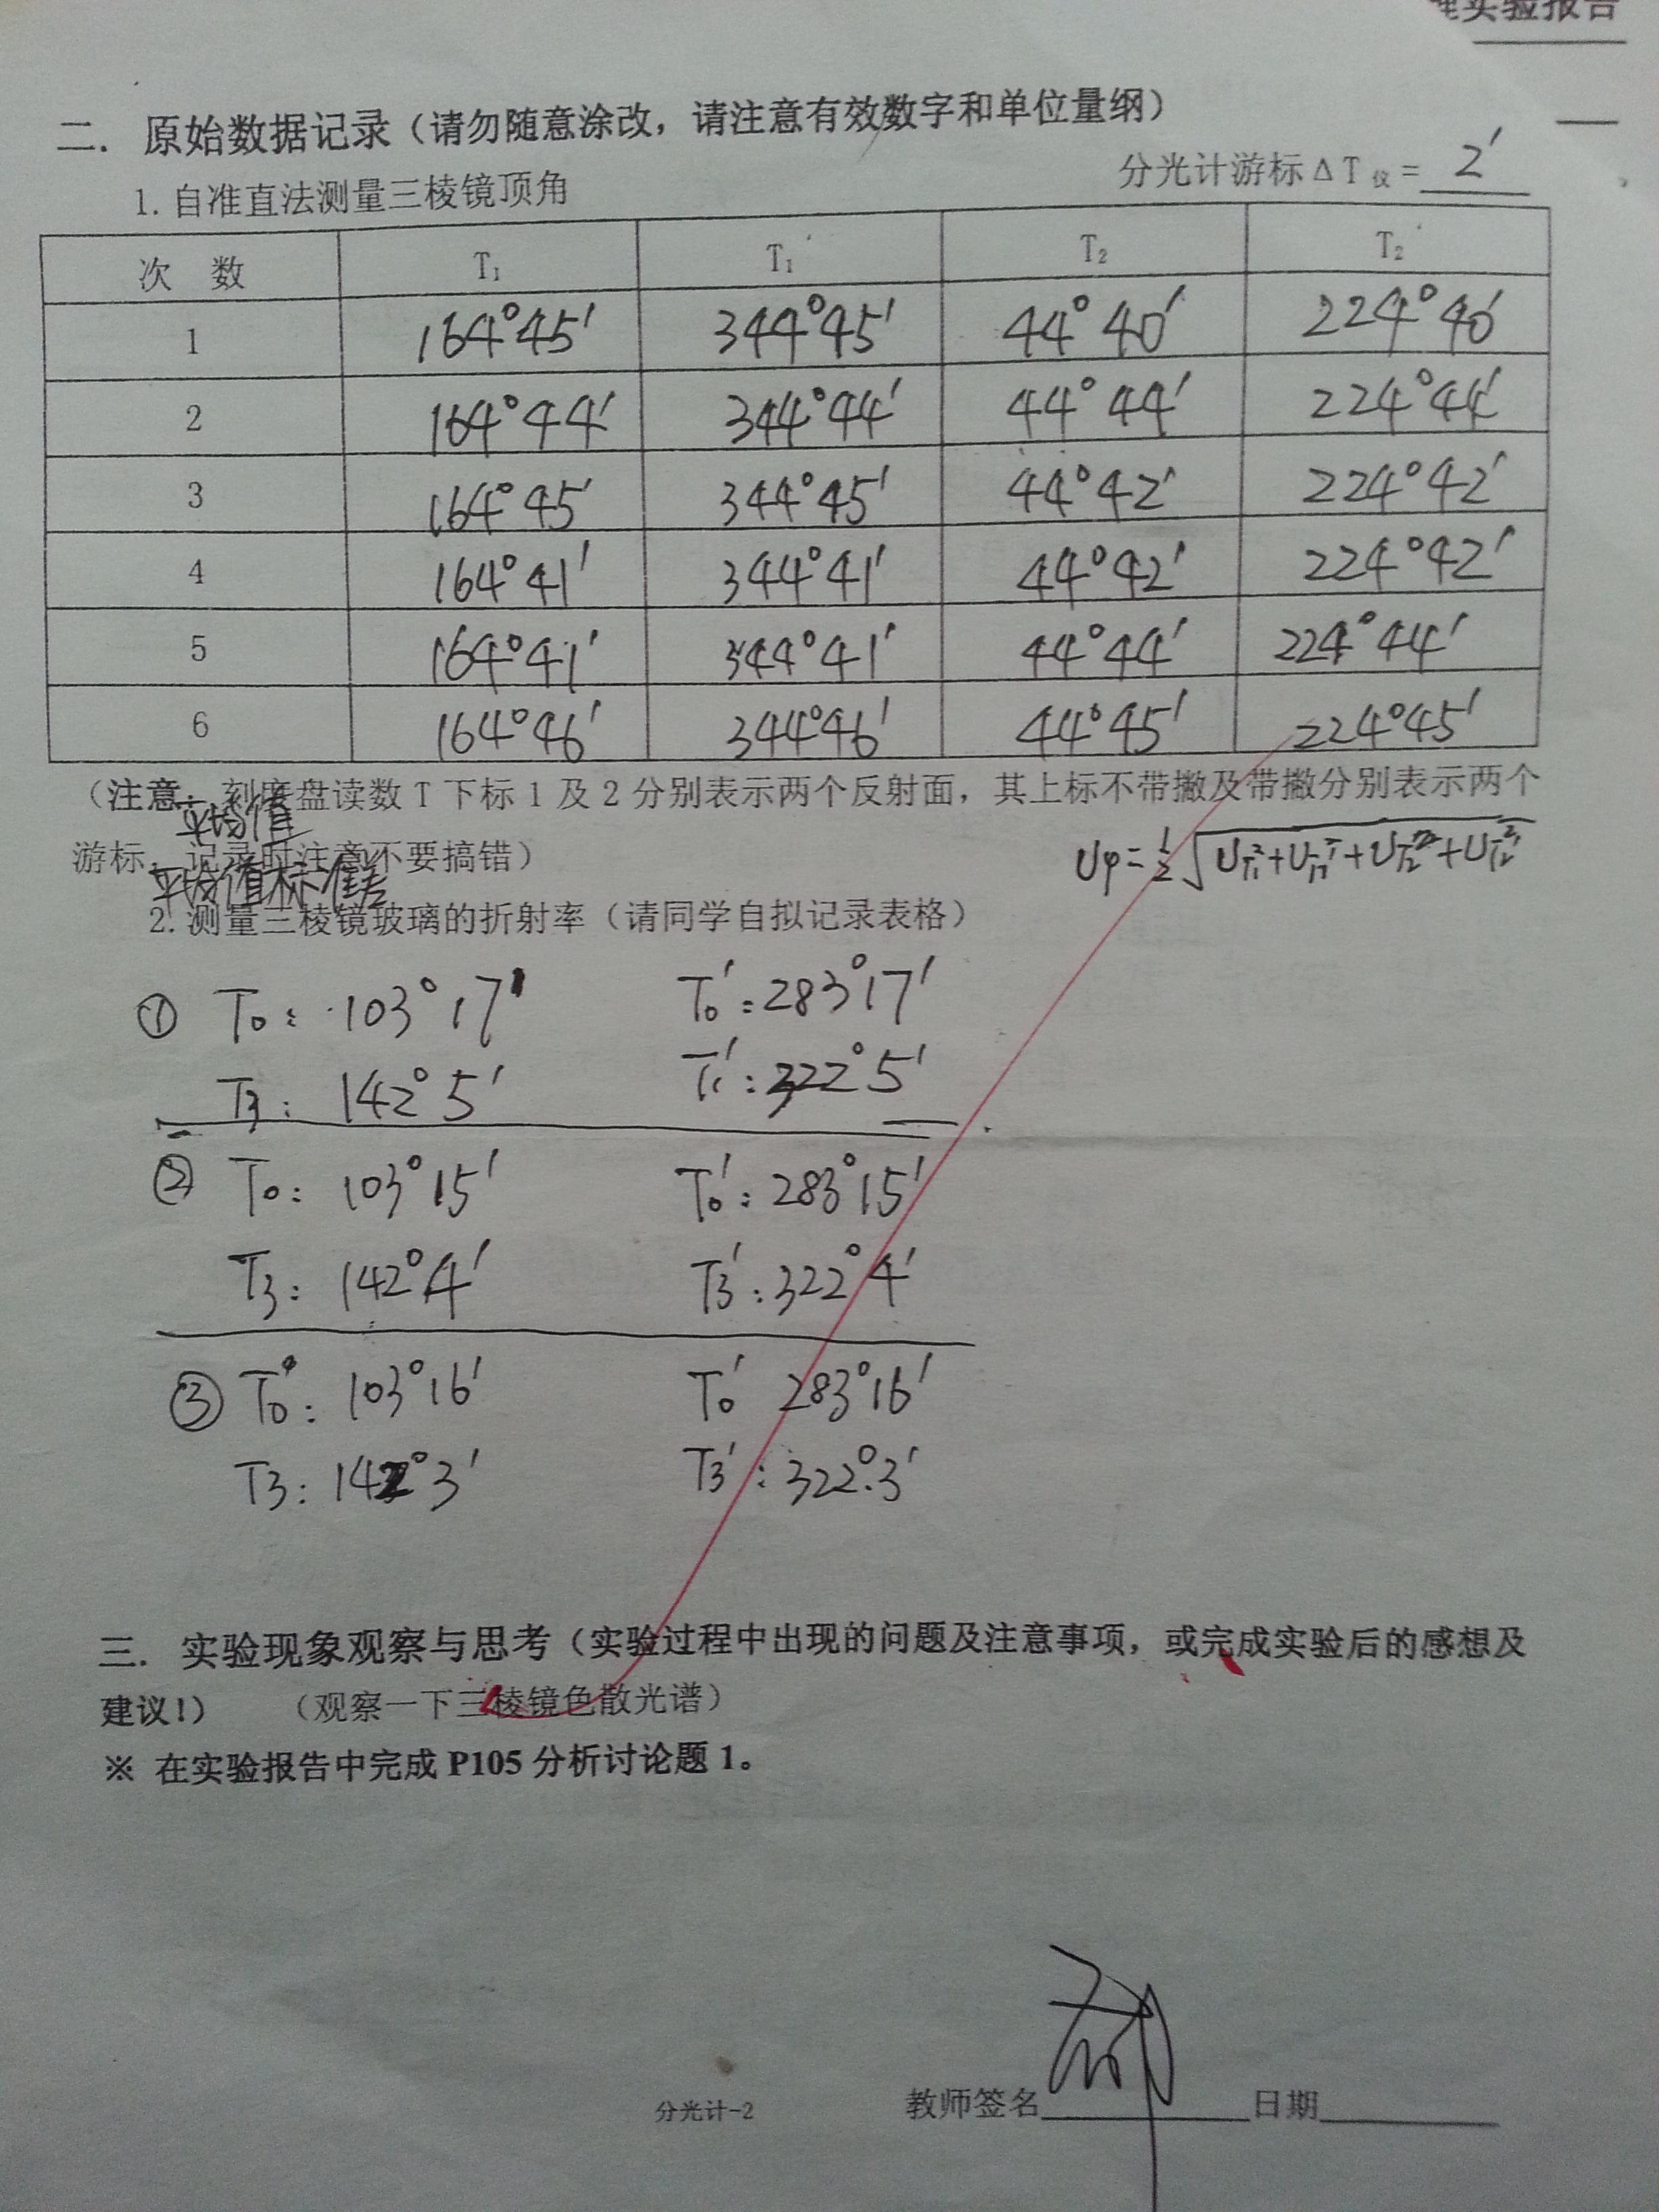 理实验报告
二. 原始数据记录（请勿随意涂改，请注意有效数字和单位量纲）
分光计游标ΔT仪=2′
1.自准直法测量三棱镜顶角
次 数 T₁ T₁′ T₂ T₂′
1 164°45′ 344°45′ 44°40′ 224°40′
2 164°44′ 344°44′ 44°44′ 224°44′
3 164°45′ 344°45′ 44°42′ 224°42′
4 164°41′ 344°41′ 44°42′ 224°42′
5 164°41′ 344°41′ 44°44′ 224°44′
6 164°46′ 344°46′ 44°45′ 224°45′
（注意：刻度盘读数 T 下标 1 及 2 分别表示两个反射面，其上标不带撇及带撇分别表示两个
平均值
游标，记录时注意不要搞错）
平均值标准差
2.测量三棱镜玻璃的折射率（请同学自拟记录表格）
① T₀: 103°17′ T₀′: 283°17′
T₃: 142°5′ T₁′: 322°5′
② T₀: 103°15′ T₀′: 283°15′
T₃: 142°4′ T₃′: 322°4′
③ T₀: 103°16′ T₀′ 283°16′
T₃: 142°3′ T₃′: 322°3′
三. 实验现象观察与思考（实验过程中出现的问题及注意事项，或完成实验后的感想及
建议！） （观察一下三棱镜色散光谱）
※ 在实验报告中完成 P105 分析讨论题 1。
分光计-2
教师签名 日期